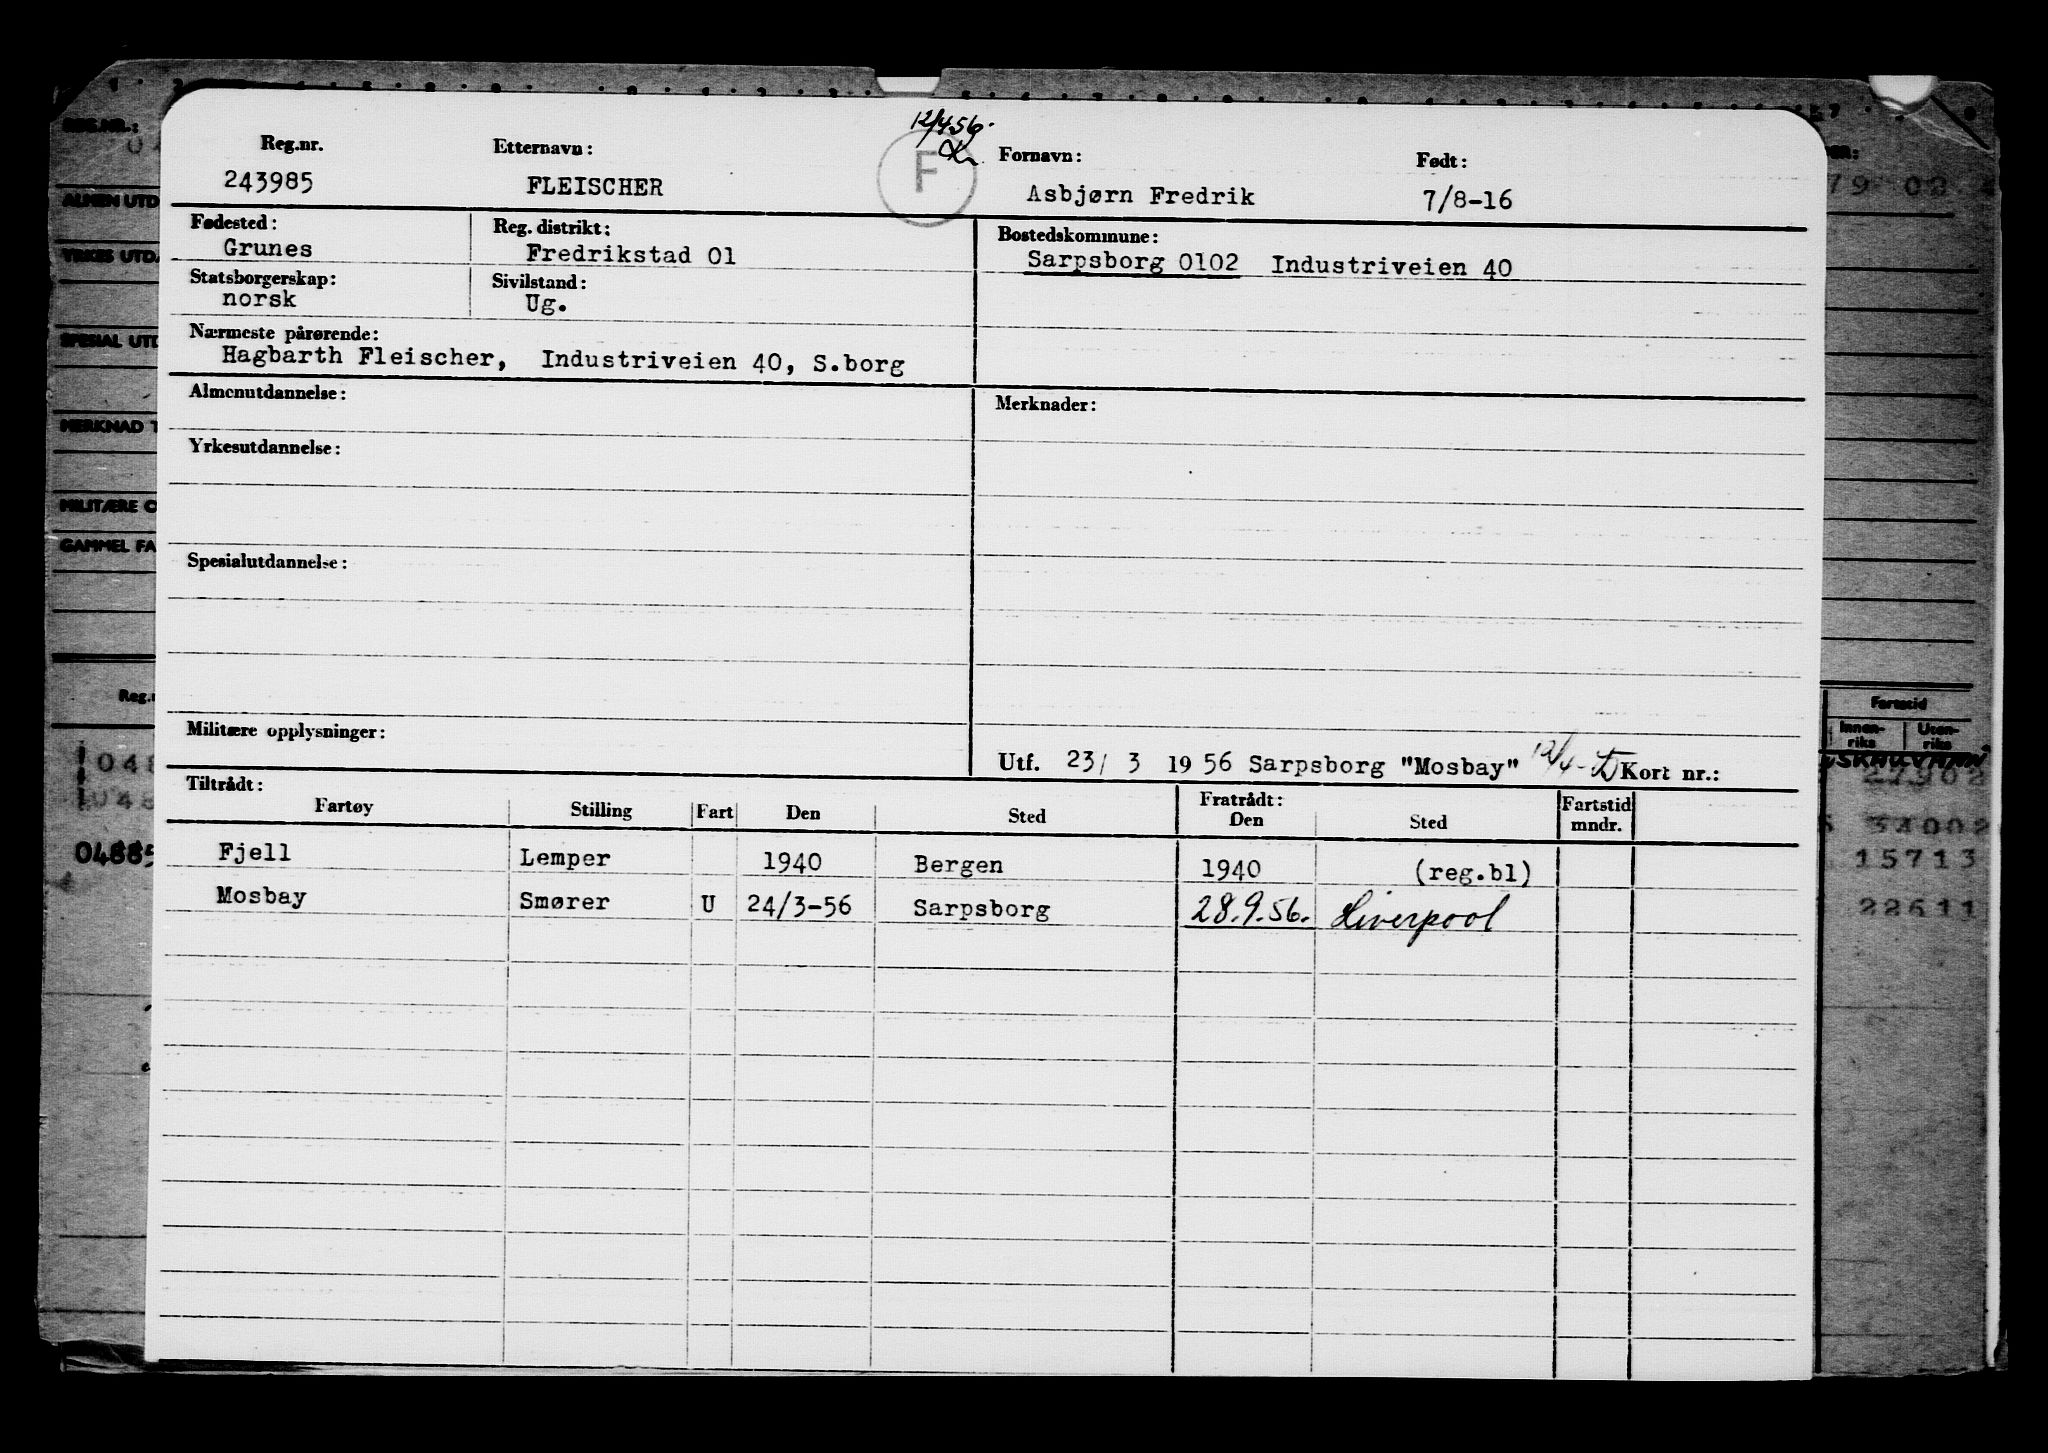 12/4.56.
F
Reg.nr. Etternavn: Fornavn: Født:
243985 FLEISCHER Asbjørn Fredrik 7/8-16
Fødested: Reg. distrikt: Bostedskommune:
Grunes Fredrikstad 01 Sarpsborg 0102 Industriveien 40
Statsborgerskap: Sivilstand:
norsk Ug.
Nærmeste pårørende:
Hagbarth Fleischer, Industriveien 40, S.borg
Almenutdannelse: Merknader:
Yrkesutdannelse:
Spesialutdannelse:
Militære opplysninger:
Utf. 23/ 3 19 56 Sarpsborg "Mosbay" 12/4- Kort nr.:
Tiltrådt: Fratrådt: Fartstid
Fartøy Stilling Fart Den Sted Den Sted mndr.
Fjell Lemper 1940 Bergen 1940 (reg.bl)
Mosbay Smører U 24/3-56 Sarpsborg 28.9.56. Liverpool
REG.NR.:
ALMEN UTD
YRKES UTDA
SPESIAL UTD
MERKNAD T
MILITÆRE O
GAMMEL FA
Reg.n
048
048
0488
79 02
Fartstid
Innen-riks Uten-riks
27902
34002
15713
22611